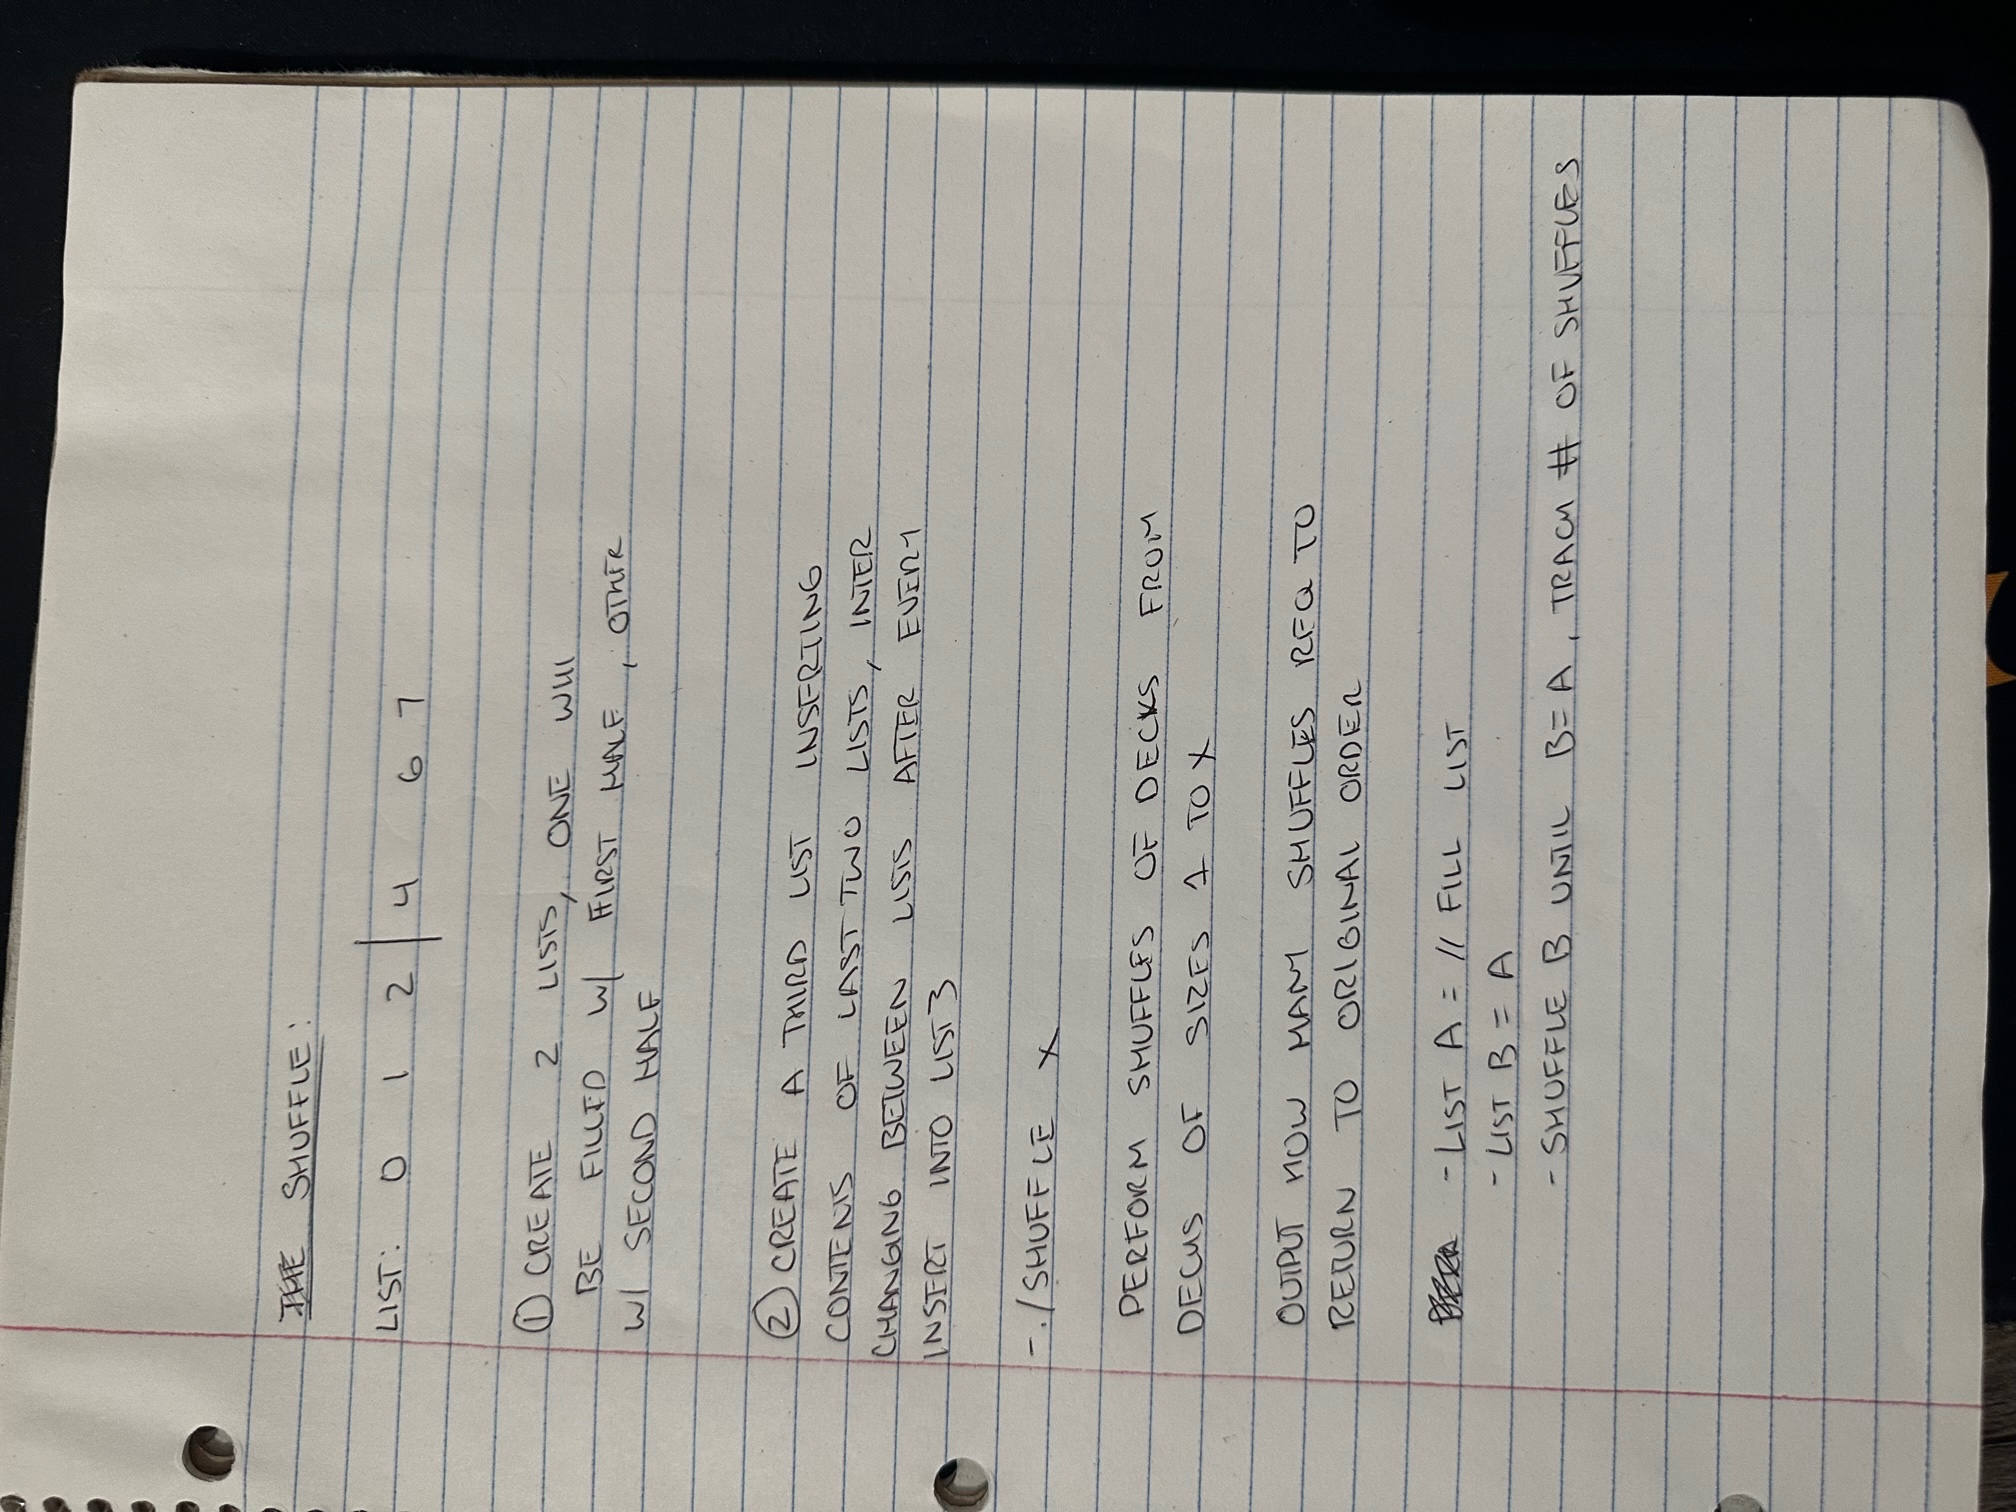 THE SHUFFLE:
LIST: 0 1 2 | 4 6 7
① CREATE 2 LISTS, ONE WILL
BE FILLED W/ FIRST HALF, OTHER
W/ SECOND HALF
② CREATE A THIRD LIST INSERTING
CONTENTS OF LAST TWO LISTS, INTER
CHANGING BETWEEN LISTS AFTER EVERY
INSERT INTO LIST 3
- ./SHUFFLE X
PERFORM SHUFFLES OF DECKS FROM
DECKS OF SIZES 1 TO X
OUTPUT HOW MANY SHUFFLES REQ TO
RETURN TO ORIGINAL ORDER
- LIST A = // FILL LIST
- LIST B = A
- SHUFFLE B UNTIL B = A, TRACK # OF SHUFFLES